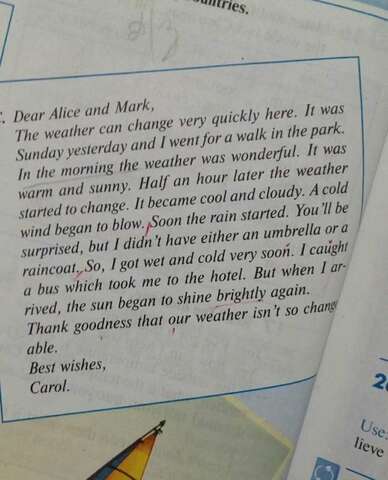 ountries.
Dear Alice and Mark,
The weather can change very quickly here. It was
Sunday yesterday and I went for a walk in the park.
In the morning the weather was wonderful. It was
warm and sunny. Half an hour later the weather
started to change. It became cool and cloudy. A cold
wind began to blow. Soon the rain started. You'll be
surprised, but I didn't have either an umbrella or a
raincoat. So, I got wet and cold very soon. I caught
a bus which took me to the hotel. But when I ar-
rived, the sun began to shine brightly again.
Thank goodness that our weather isn't so change
able.
Best wishes,
Carol.
Use
lieve